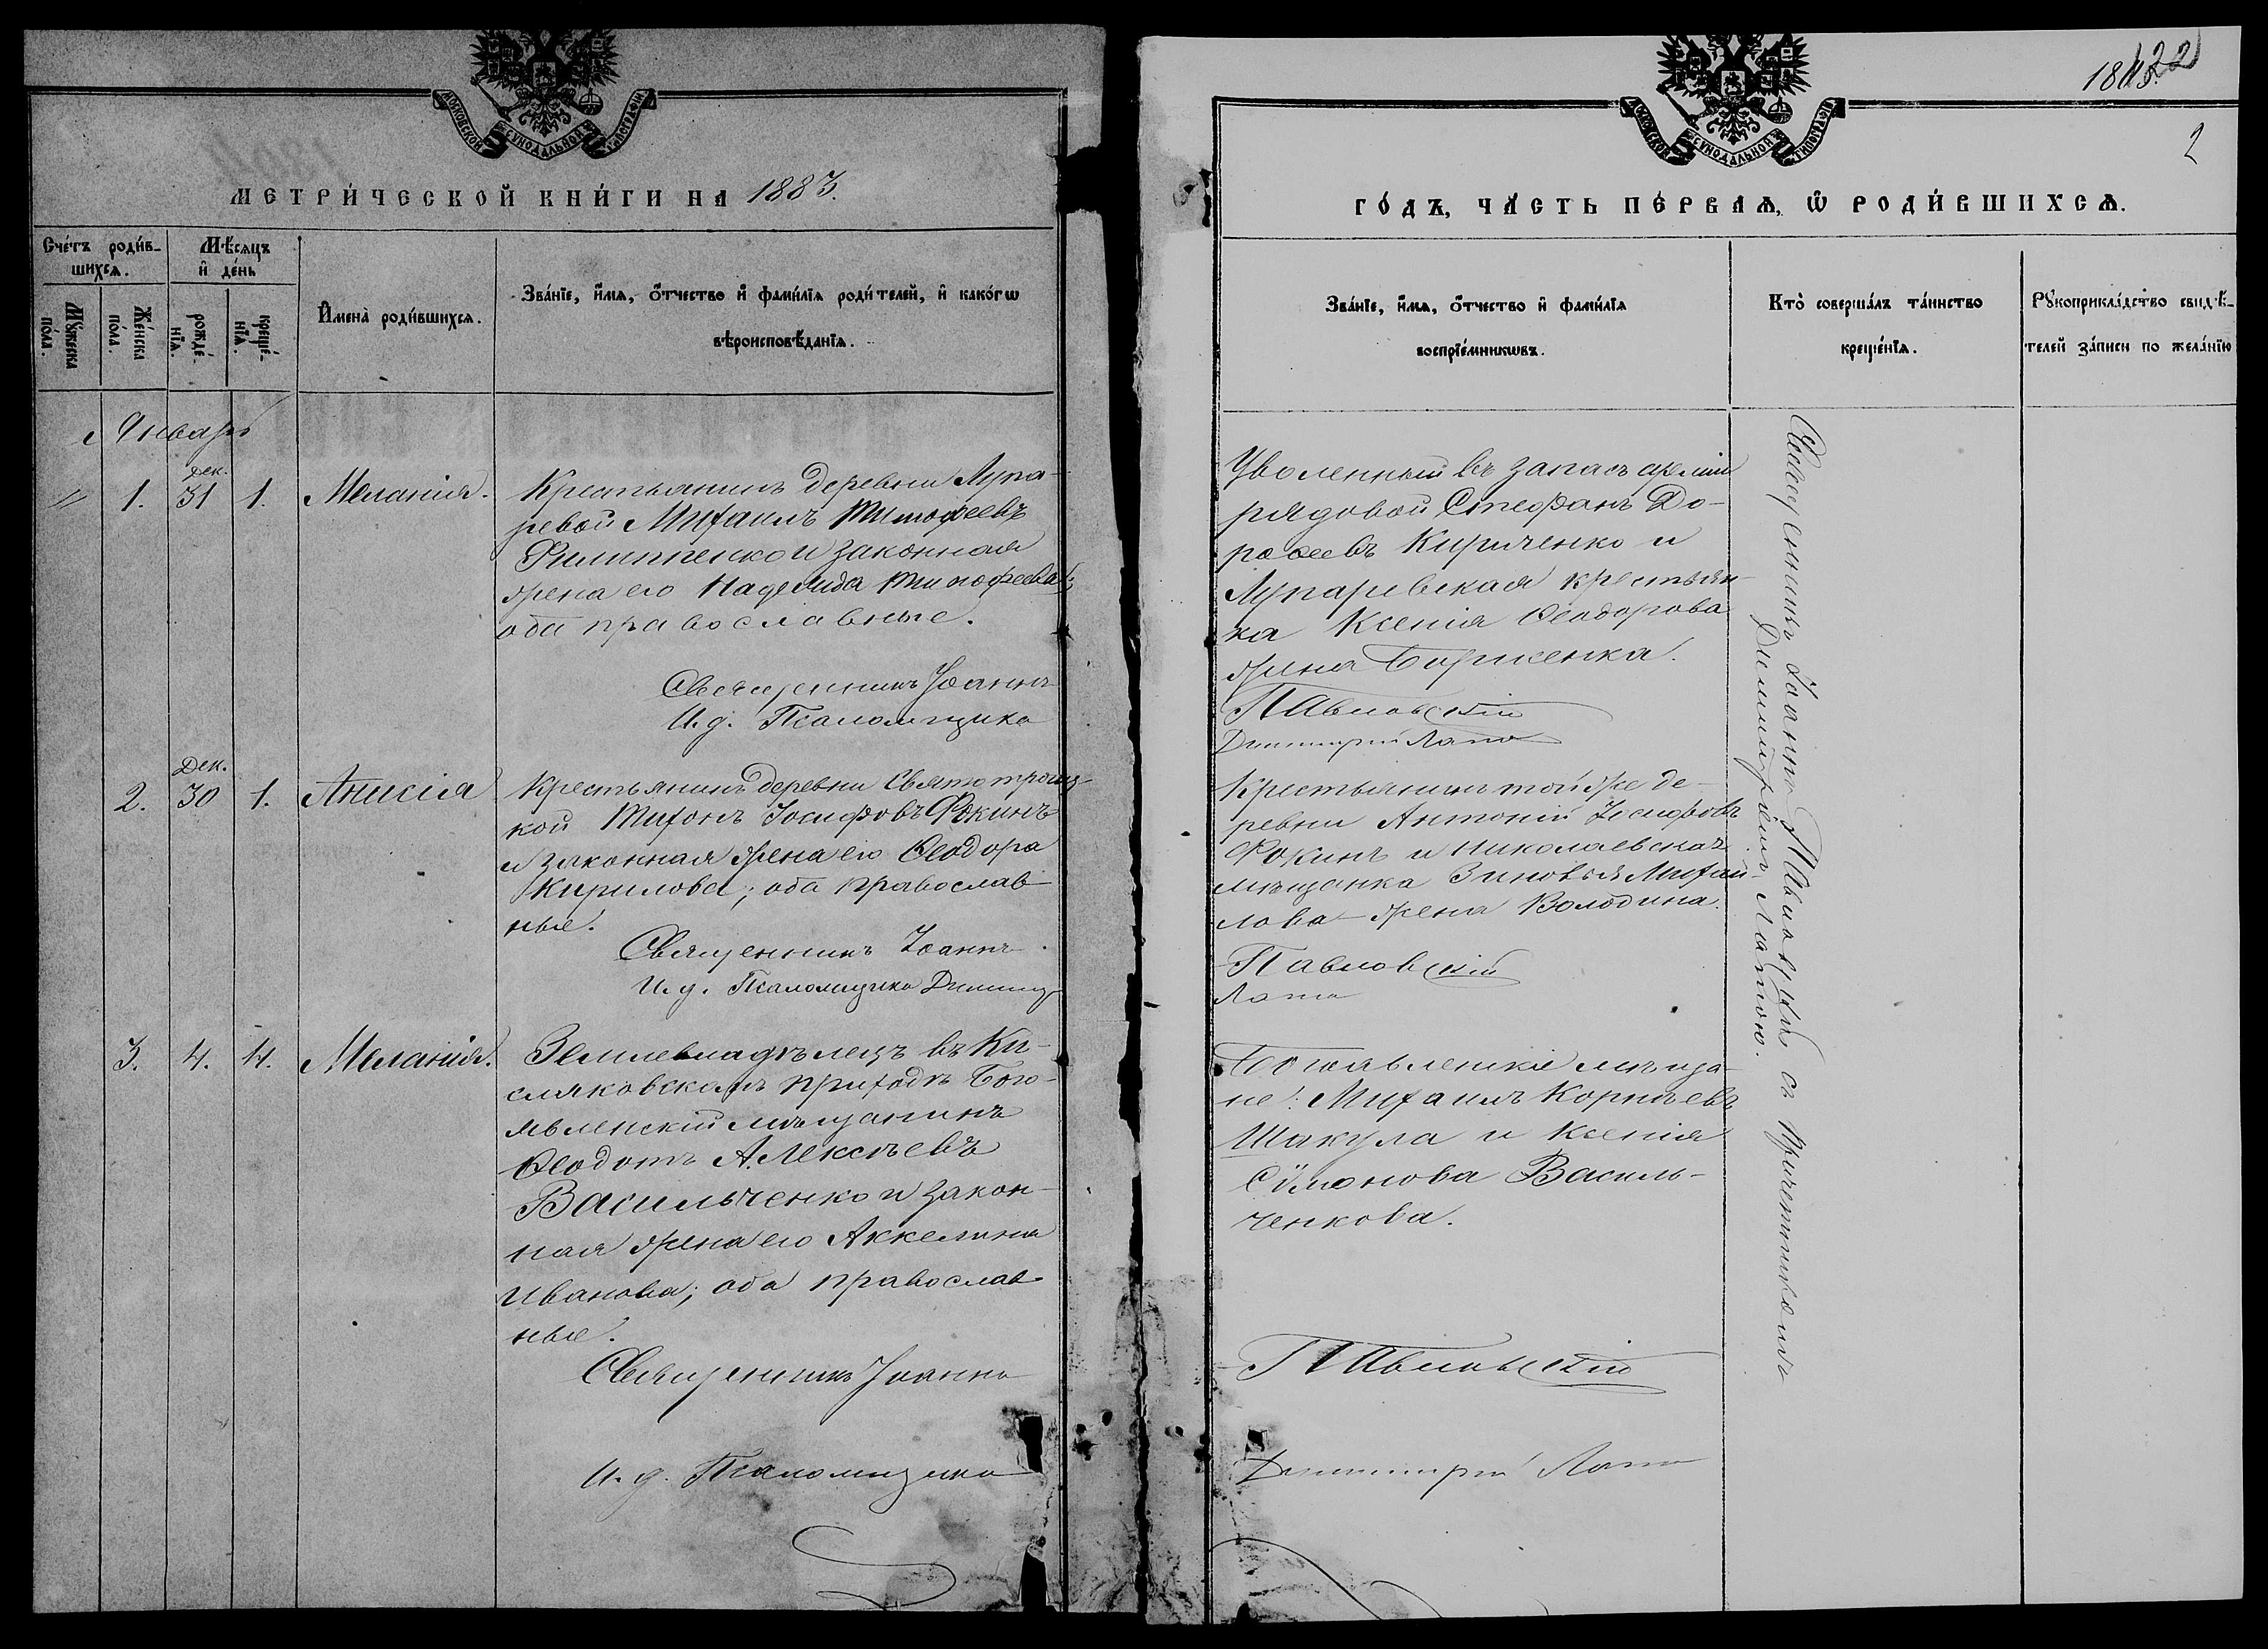 МОСКОВСКОЙ СУНОДАЛЬНОЙ ТИПОГРАФІИ
МЕТРИ́ЧЕСКОЙ КНИ́ГИ НА 1883.
Сче́тъ роди́в-
шихсѧ.
Мѣ́сѧцъ
и҆ де́нь
Мꙋ́жеска
по́ла.
Же́нска
по́ла.
рожде́-
нїѧ.
креще́-
нїѧ.
И҆мена̀ роди́вшихсѧ.
Зва́нїе, и҆́мѧ, ѻ҆́тчество и҆ фами́лїѧ роди́телей, и҆ како́гѡ
вѣроисповѣ́данїѧ.
Январь
" 1. Дек. 31 1. Меланія.
Крестьянинъ деревни Лупа-
ревой Михаилъ Тимофеевъ
Филиппенко и законная
жена его Надежда Тимофеева;
оба православные.
Священникъ Іоаннъ
И. д. Псаломщика
2. Дек. 30 1. Анисія
Крестьянинъ деревни Святотроиц-
кой Тихонъ Іосифовъ Фокинъ
и законная жена его Ѳеодора
Кирилова; оба православ-
ные.
Священникъ Іоаннъ
И. д. Псаломщика Димитр
3. 4. 4. Меланія.
Землевладѣлецъ въ Ки-
сляковскомъ приходѣ Бого-
явленскій мѣщанинъ
Ѳеодотъ Алексѣевъ
Васильченко и закон-
ная жена его Аккелина
Иванова; оба православ-
ные.
Священникъ Іоаннъ
И. д. Псаломщика
МОСКОВСКОЙ СУНОДАЛЬНОЙ ТИПОГРАФІИ
2
ГО́ДЪ, ЧА́СТЬ ПЕ́РВАѦ, Ѽ РОДИ́ВШИХСѦ.
Зва́нїе, и҆́мѧ, ѻ҆́тчество и҆ фами́лїѧ
воспрїе́мникѡвъ.
Кто̀ соверша́лъ та́инство
креще́нїѧ.
Рꙋкоприкла́дство свидѣ́-
телей за́писи по жела́нїю
Уволенный въ запасъ арміи
рядовой Стефанъ До-
роѳеевъ Кириченко и
Лупаревская крестьян-
ка Ксенія Ѳеодорова
жена
Павловскій
Димитрій Лапа
Крестьянинъ той же де-
ревни Антоній Іосифовъ
Фокинъ и николаевская
мѣщанка Зиновія Михай-
лова жена Володина.
Павловскій
Лапа
Богоявленскіе мѣща-
не: Михаилъ Корнѣевъ
Шакула и Ксенія
Сѵмонова Василь-
ченкова.
Павловскій
Димитрій Лапа
Священникъ Іоаннъ Павловскій съ причетникомъ
Димитріемъ Лапою.